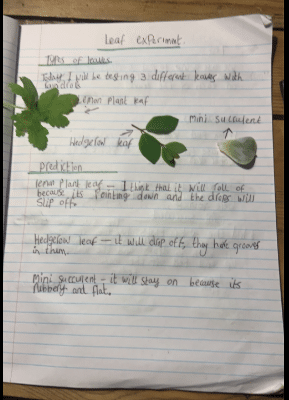 Leaf experiment.
Types of leaves
Today I will be testing 3 different leaves with
lemon Plant leaf
Mini succulent
Hedgerow leaf
Prediction
lemon Plant leaf - I think that it will roll of
because its Pointing down and the drops will
slip off.
Hedgerow leaf - it will drip off, they have grooves
in them.
Mini succulent - it will stay on because its
rubbery and flat.